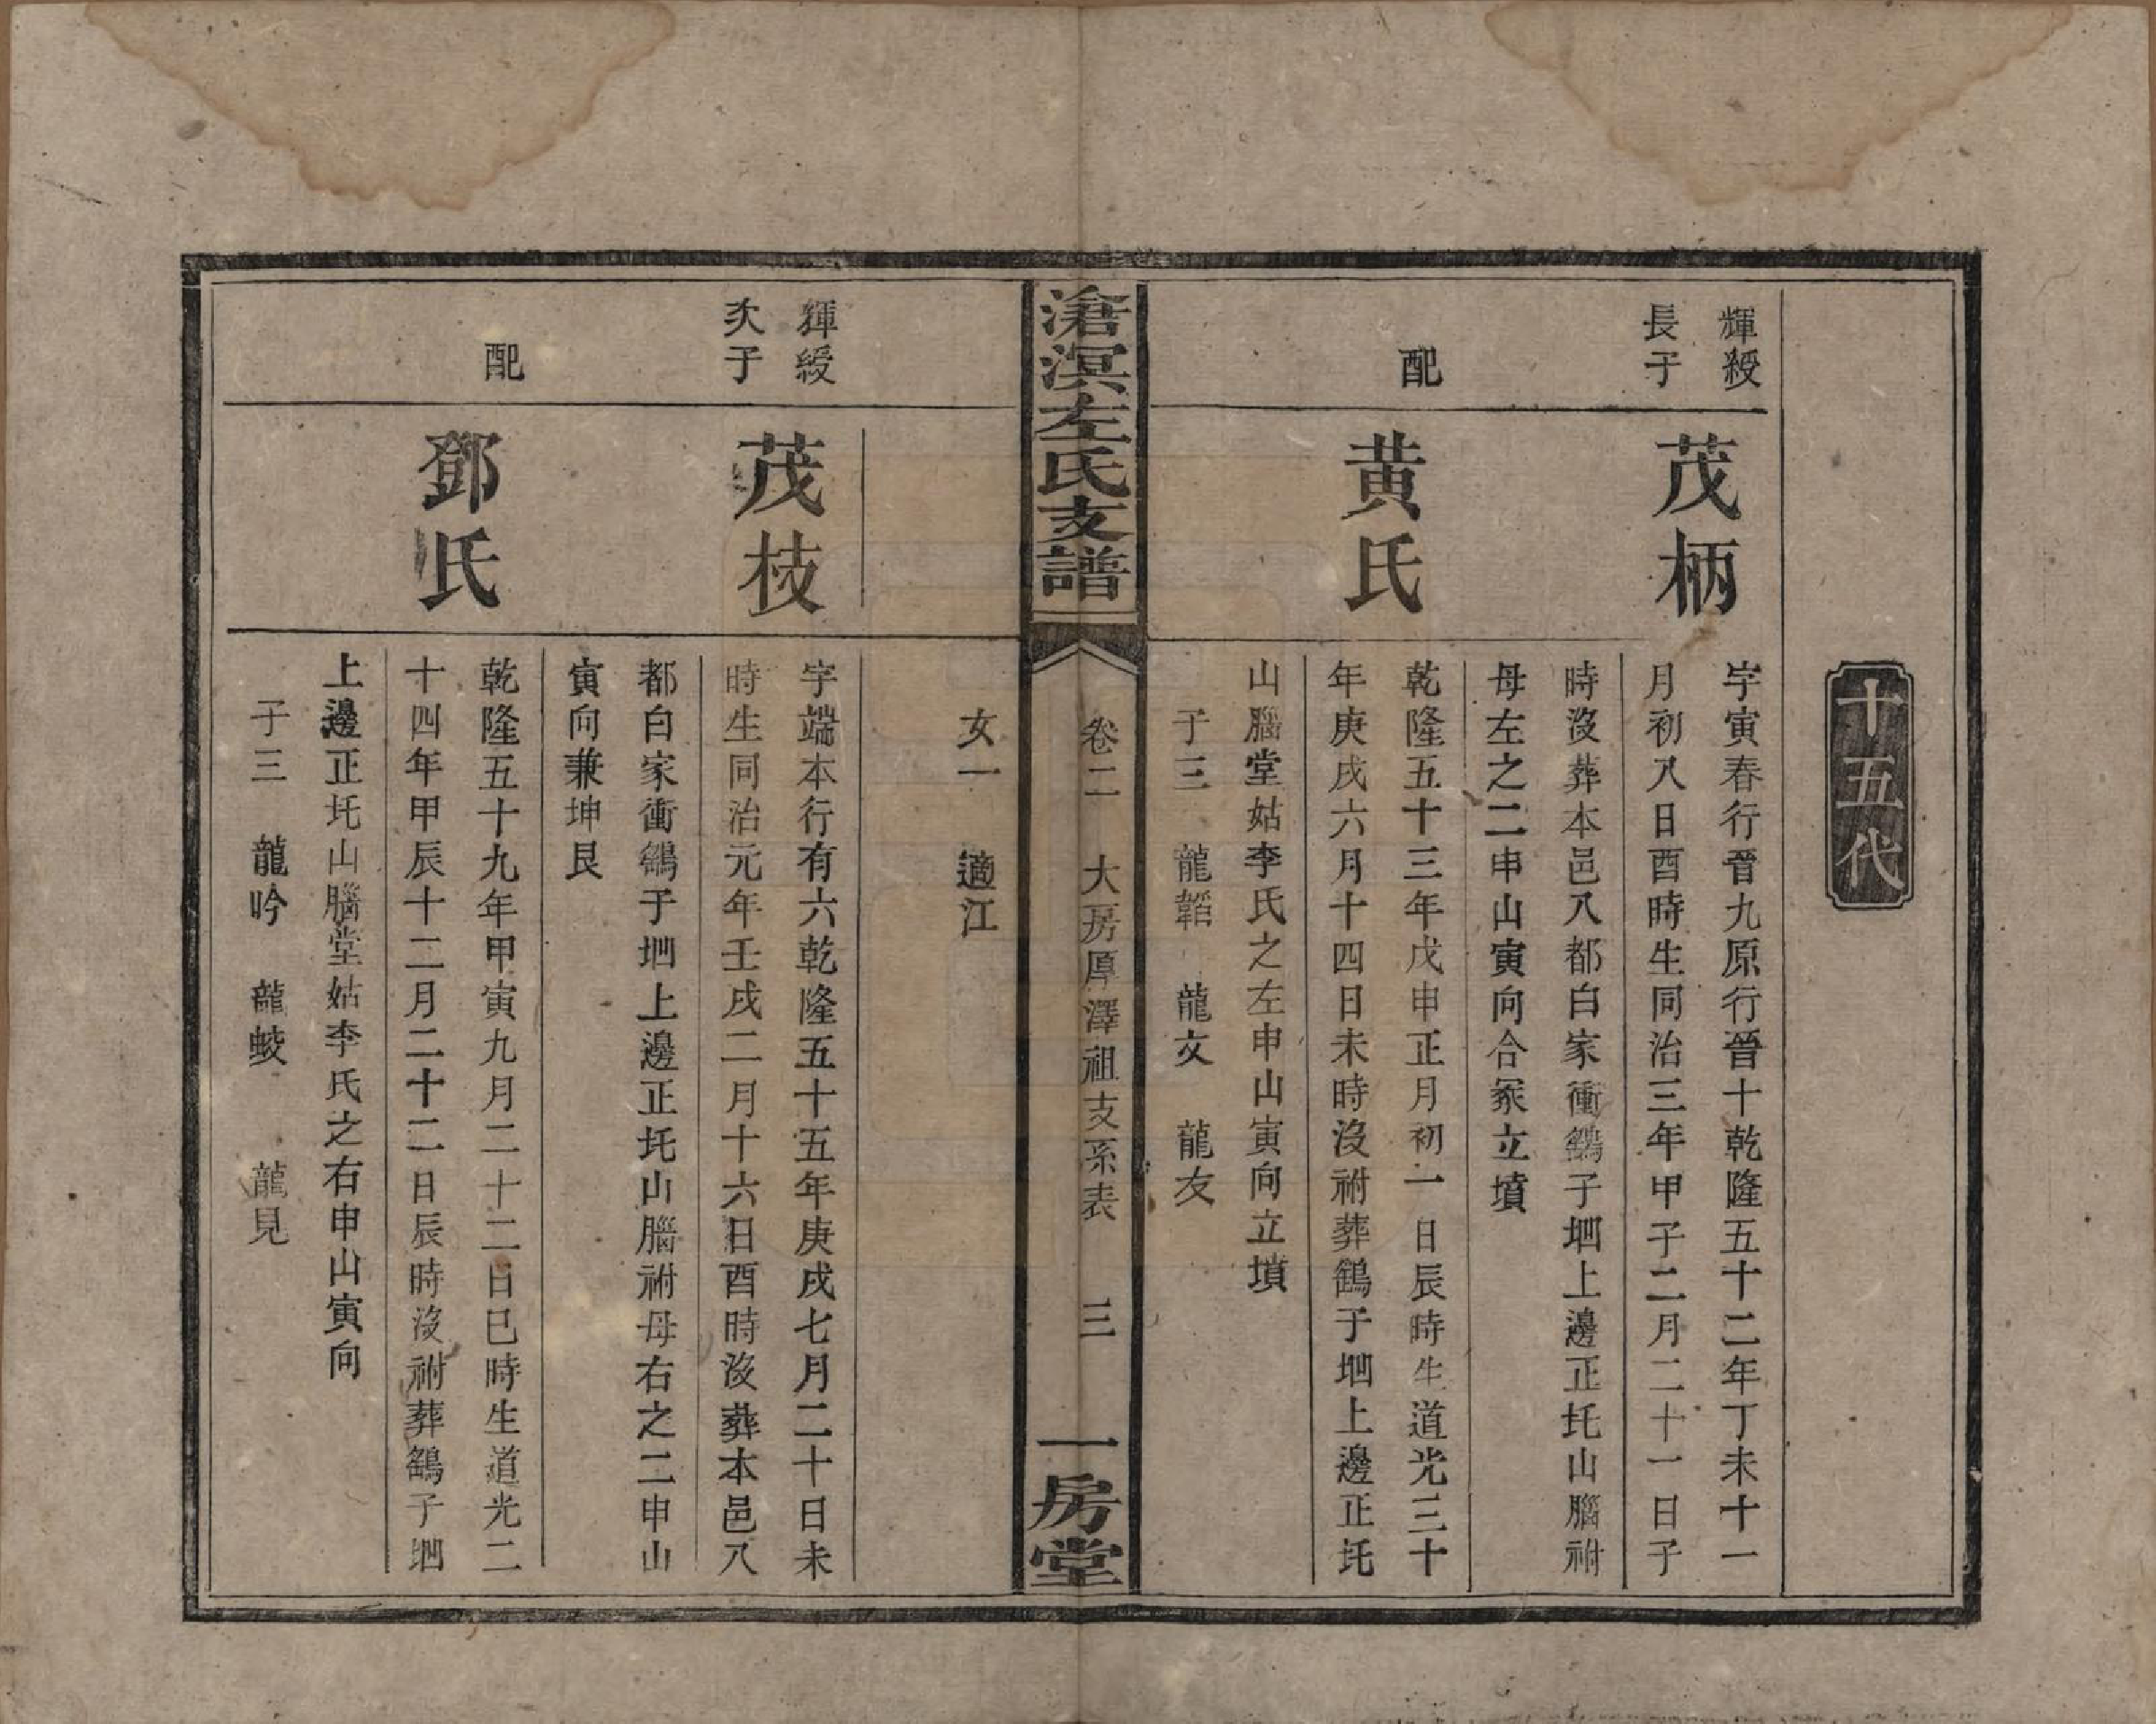 十五代
輝綬
長子
茂柄
字寅春行晉九原行晉十乾隆五十二年丁未十一
月初八日酉時生同治三年甲子二月二十一日子
時沒葬本邑八都白家衝鷂子堌上邊正圫山腦祔
母左之二申山寅向合冢立墳
配
黄氏
乾隆五十三年戊申正月初一日辰時生道光三十
年庚戌六月十四日未時沒祔葬鷂子堌上邊正圫
山腦堂姑李氏之左申山寅向立墳
子三 龍韜 龍文 龍友
滄溟左氏支譜
卷二 大房厚澤祖支系表 三
一房堂
女一 適江
輝綬
次子
茂枝
字端本行有六乾隆五十五年庚戌七月二十日未
時生同治元年壬戌二月十六日酉時沒葬本邑八
都白家衝鷂子堌上邊正圫山腦祔母右之二申山
寅向兼坤艮
配
鄧氏
乾隆五十九年甲寅九月二十二日巳時生道光二
十四年甲辰十二月二十二日辰時沒祔葬鷂子堌
上邊正圫山腦堂姑李氏之右申山寅向
子三 龍吟 龍蛟 龍見